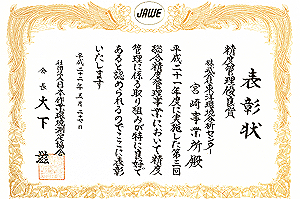 JAWE
表彰状
精度管理優良賞
株式会社東洋環境分析センター
宮崎事業所殿
平成二十一年度に実施した第三回
総合精度管理事業において精度
管理に係る取り組みが特に良好で
あると認められるのでここに表彰
いたします
平成二十二年五月二十七日
社団法人日本作業環境測定協会
会長 大下 滋